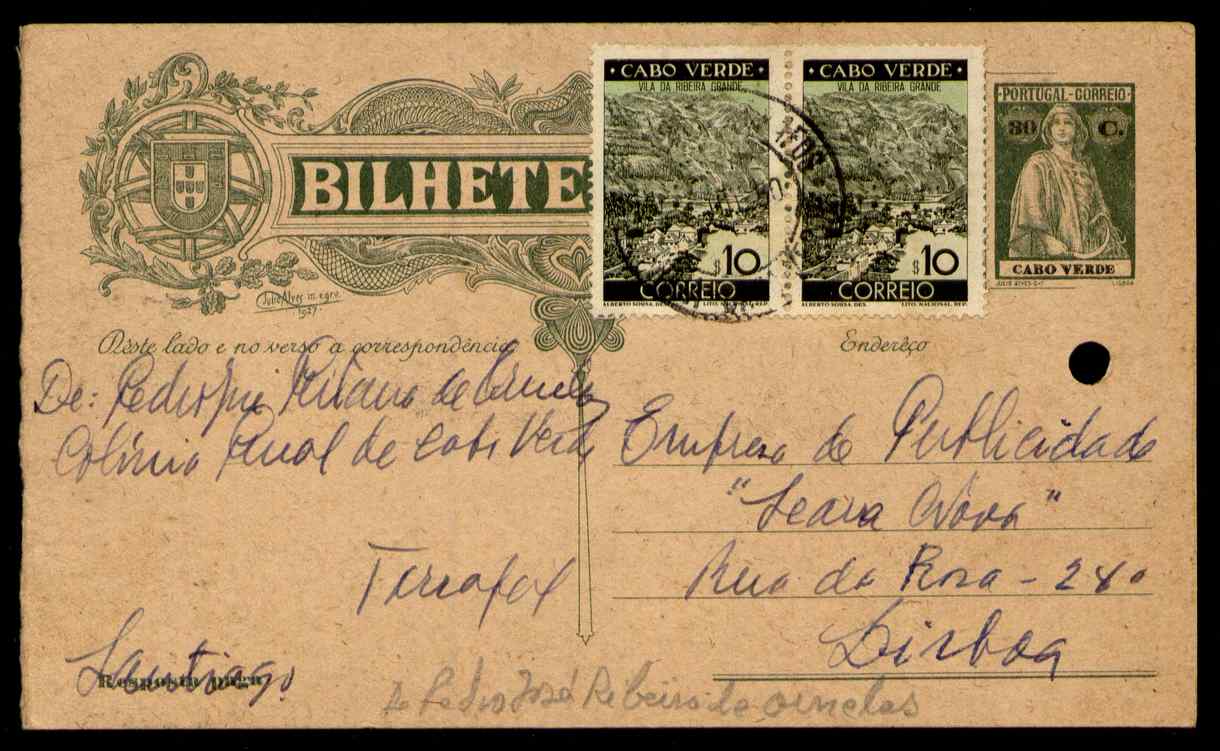 BILHETE
Julio Alves in. e grv.
1927.
CABO VERDE
VILA DA RIBEIRA GRANDE
$10
CORREIO
ALBERTO SOUSA. DES. LITO. NACIONAL. REP.
CABO VERDE
VILA DA RIBEIRA GRANDE
$10
CORREIO
ALBERTO SOUSA. DES. LITO. NACIONAL. REP.
PORTUGAL-CORREIO
30 C.
CABO VERDE
JULIO ALVES GRV LISBOA
Dêste lado e no verso a correspondência
Endereço
De: Pedro José Ribeiro de Ornelas
Colónia Penal de Cabo Verde
Tarrafal
Santiago
Resposta paga
Empresa de Publicidade
"Seara Nova"
Rua da Rosa - 240
Lisboa
De Pedro José Ribeiro de ornelas